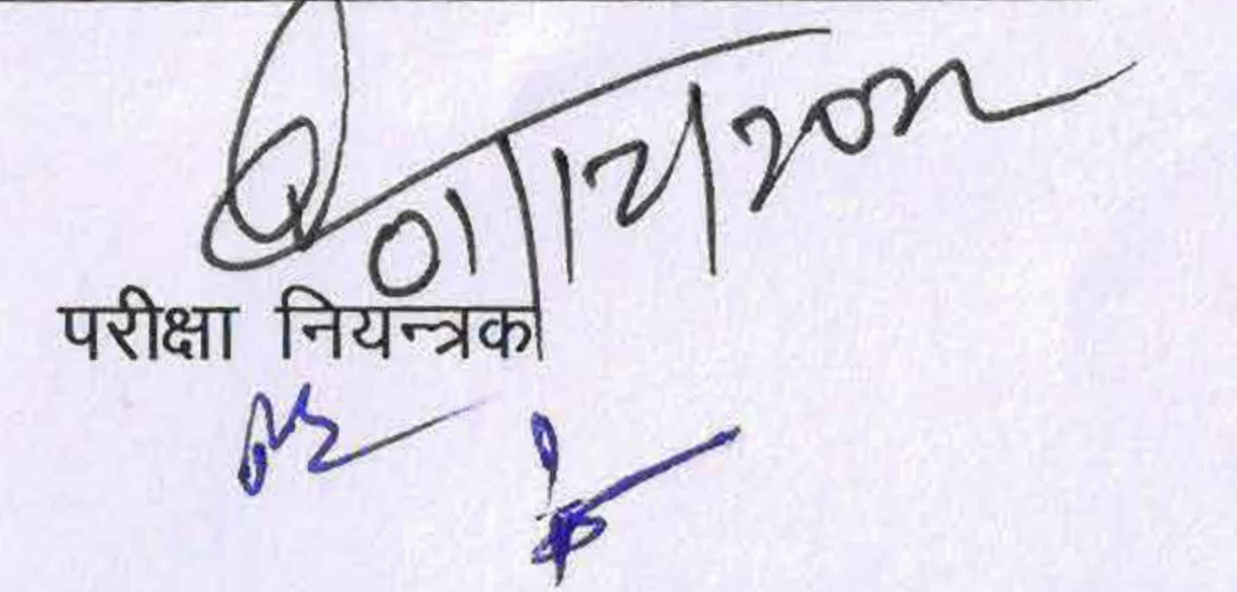 01/12/2022
परीक्षा नियन्त्रक